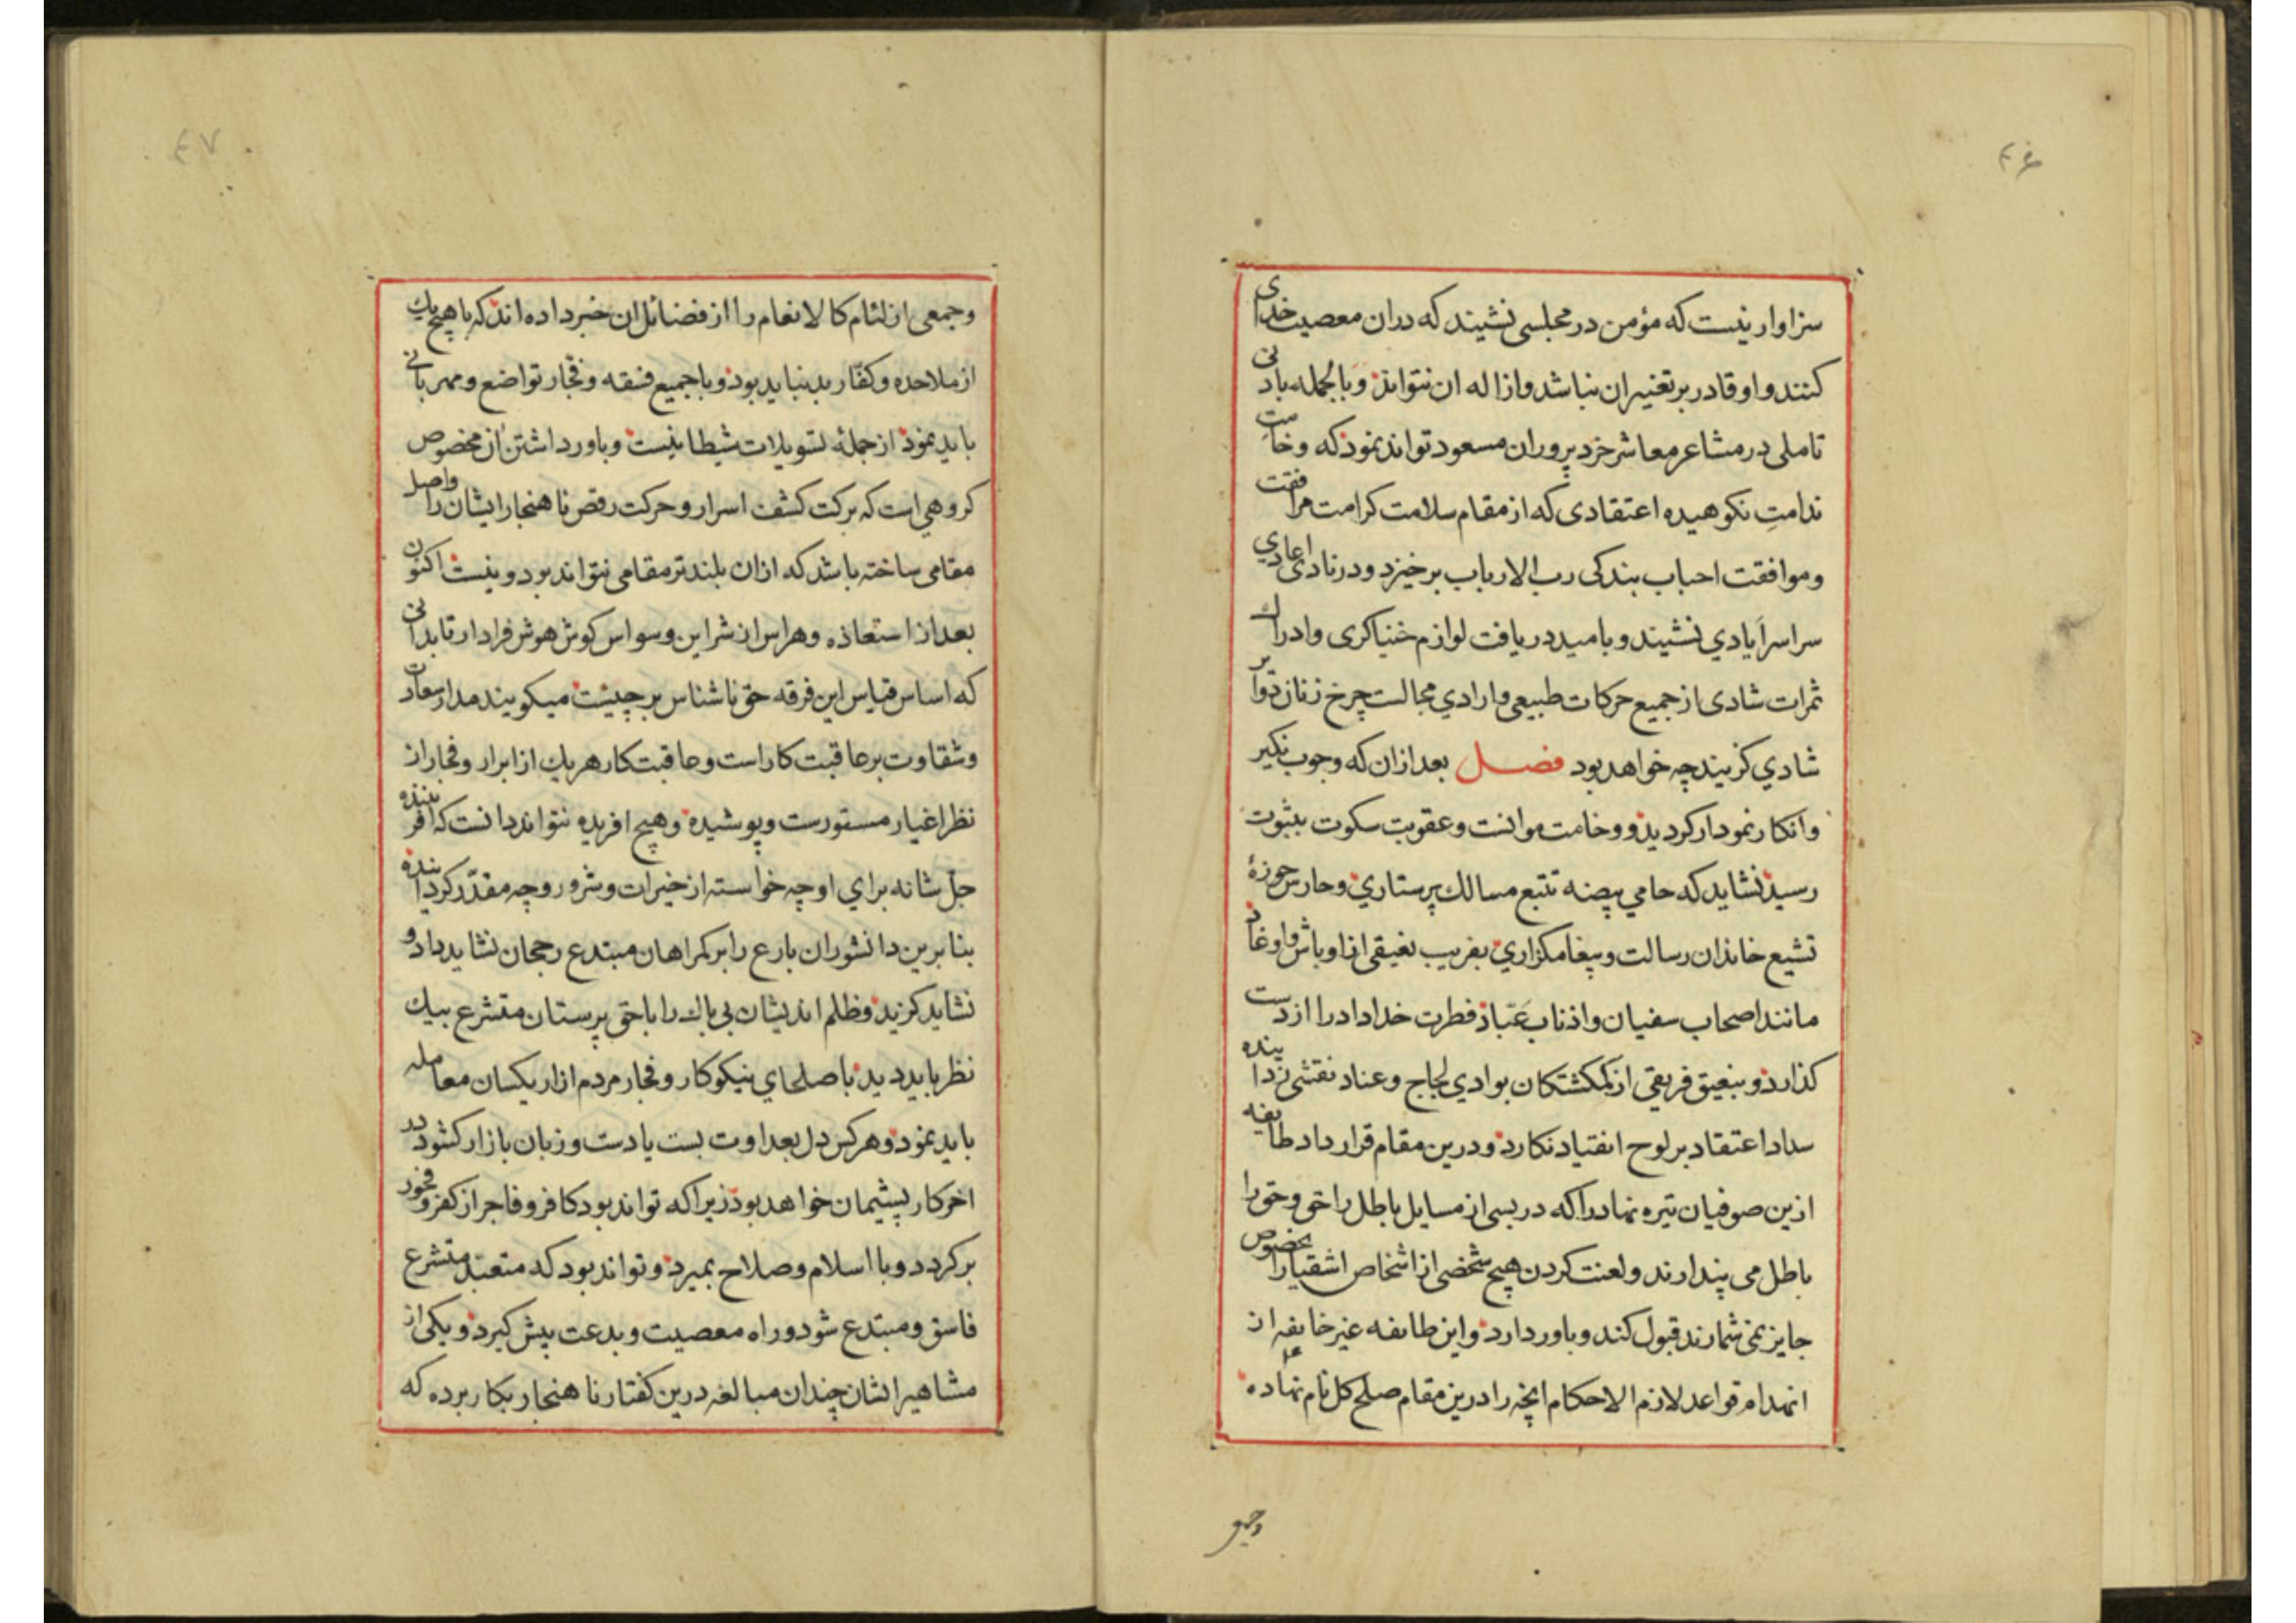 ۴۶
سزاوار نیست که مؤمن در مجلسی نشیند که دران معصیت خدای
کنند و او قادر بر تغییر ان نباشد و ازاله ان نتواند و بالجمله باد نی
تاملی در مشاعر معاشر خرد پروران مسعود تواند نمود که وخامت
ندامتِ نکوهیده اعتقادی که از مقام سلامت کرامت مرافقت
و موافقت احباب بندکی رب الارباب برخیزد و در نادی اعادي
سراسر ایادي نشیند و بامید دریافت لوازم خنیاکری و ادراك
ثمرات شادی از جمیع حرکات طبیعی و ارادي مجالست چرخ زنان تواتر
شادي کزیند چه خواهد بود فصل بعد ازان که وجوب نکیر
و انکار نمودار کردید و وخامت موانست و عقوبت سکوت بثبوت
رسید نشاید که حامي بیضه تتبع مسالك پرستاري و حارس حوزهٔ
تشیع خاندان رسالت و پیغامکزاري بفریب نعیقی از اوباش و اوغاد
مانند اصحاب سفیان و اذناب عَبّاد فطرت خداداد را از دست
کذارد و بنعیق فریقي از کمکشتکان بوادي لجاج و عناد نقشی زداینده
سداد اعتقاد بر لوح انقیاد نکارد و درین مقام قرارداد طایفه
ازین صوفیان تیره نهاد را که در بسی از مسایل باطل را حق و حق را
باطل می پندارند و لعنت کردن هیچ شخصی از اشخاص اشقیا را بخصوص
جایز نمی شمارند قبول کند و باور دارد و این طایفه غیر خایفه از
انهدام قواعد لازم الاحکام انچه را درین مقام صلح کل نام نهاده
وجمعی
۴۷
و جمعی از لئام کالانعام را از فضائل ان خبر داده اند که با هیچ یك
از ملاحده و کفّار بد نباید بود و با جمیع فسقه و فجّار تواضع و مهربانی
باید نمود از جملهٔ تسویلات شیطانیست و باور داشتن ان مخصوص
کروهي است که برکت کشف اسرار و حرکت رقص ناهنجار ایشان را واصل
مقامی ساخته باشد که ازان بلندتر مقامی نتواند بود و نیست اکنون
بعد از استعاذه و هراس از شر این وسواس کوش هوش فرا دار تا بدانی
که اساس قیاس این فرقه حق ناشناس بر چیست میکویند مدار سعادت
و شقاوت بر عاقبت کار است و عاقبت کار هر یك از ابرار و فجار از
نظر اغیار مستورست و پوشیده و هیچ افریده نتواند دانست که افریننده
جلّ شانه براي او چه خواسته از خیرات و شرور و چه مقدّر کردانیده
بنا برین دانشوران بارع را بر کمراهان مبتدع رجحان نشاید داد و
نشاید کزید و ظلم اندیشان بی باك را با حق پرستان متشرع بیك
نظر باید دید با صلحاي نیکوکار و فجار مردم ازار یکسان معامله
باید نمود و هر کس دل بعداوت بست یا دست و زبان بازار کشود در
اخر کار پشیمان خواهد بود زیرا که تواند بود کافر و فاجر از کفر و فجور
برکردد و با اسلام و صلاح بمیرد و تواند بود که متعبّد متشرع
فاسق و مبتدع شود و راه معصیت و بدعت پیش کیرد و یکی از
مشاهیر ایشان چندان مبالغه درین کفتار ناهنجار بکار برده که